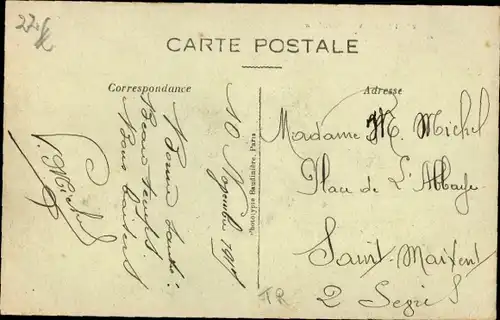 CARTE POSTALE
Correspondance
Adresse
10 Novembre
Bonne Santé:
Beau temps.
Bons baisers
P. Michel
Phototypie Baudinière, Paris
Madame M. Michel
Place de L'Abbaye
Saint-Maixent
2 Sevres